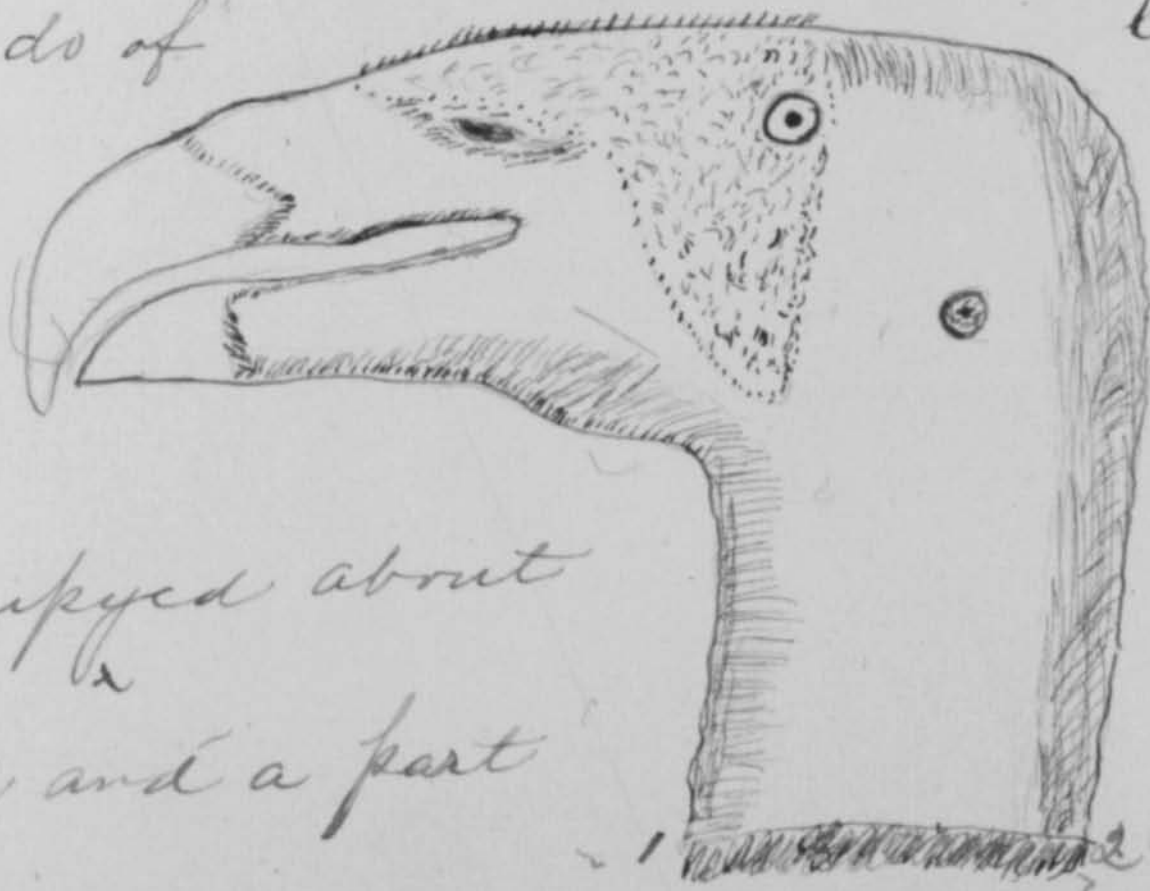 do of
upyed about
and a part
1 2